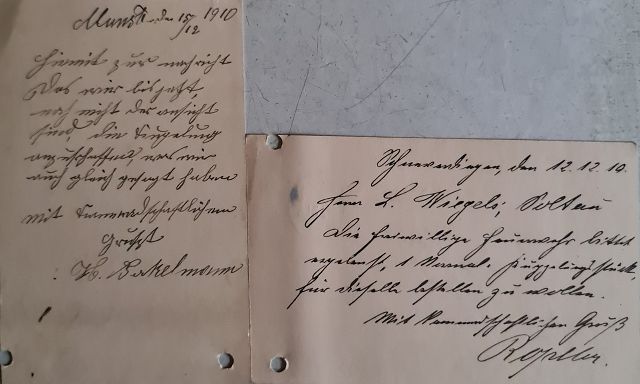 Munster den 15/12 1910
Hiermit zur nachricht
Das wir bis jetzt,
noch nicht der ansicht
sind, die
anzuschaffen, was wir
auch gleich gesagt haben
mit Kameradschaftlichem
Grusst
Schneverdingen, den 12.12.10.
Herrn L. Wiegels, Soltau
Die freiwillige Feuerwehr bittet
ergebenst, 1 Normal-
für dieselbe bestellen zu wollen.
Mit kameradschaftlichen Gruß